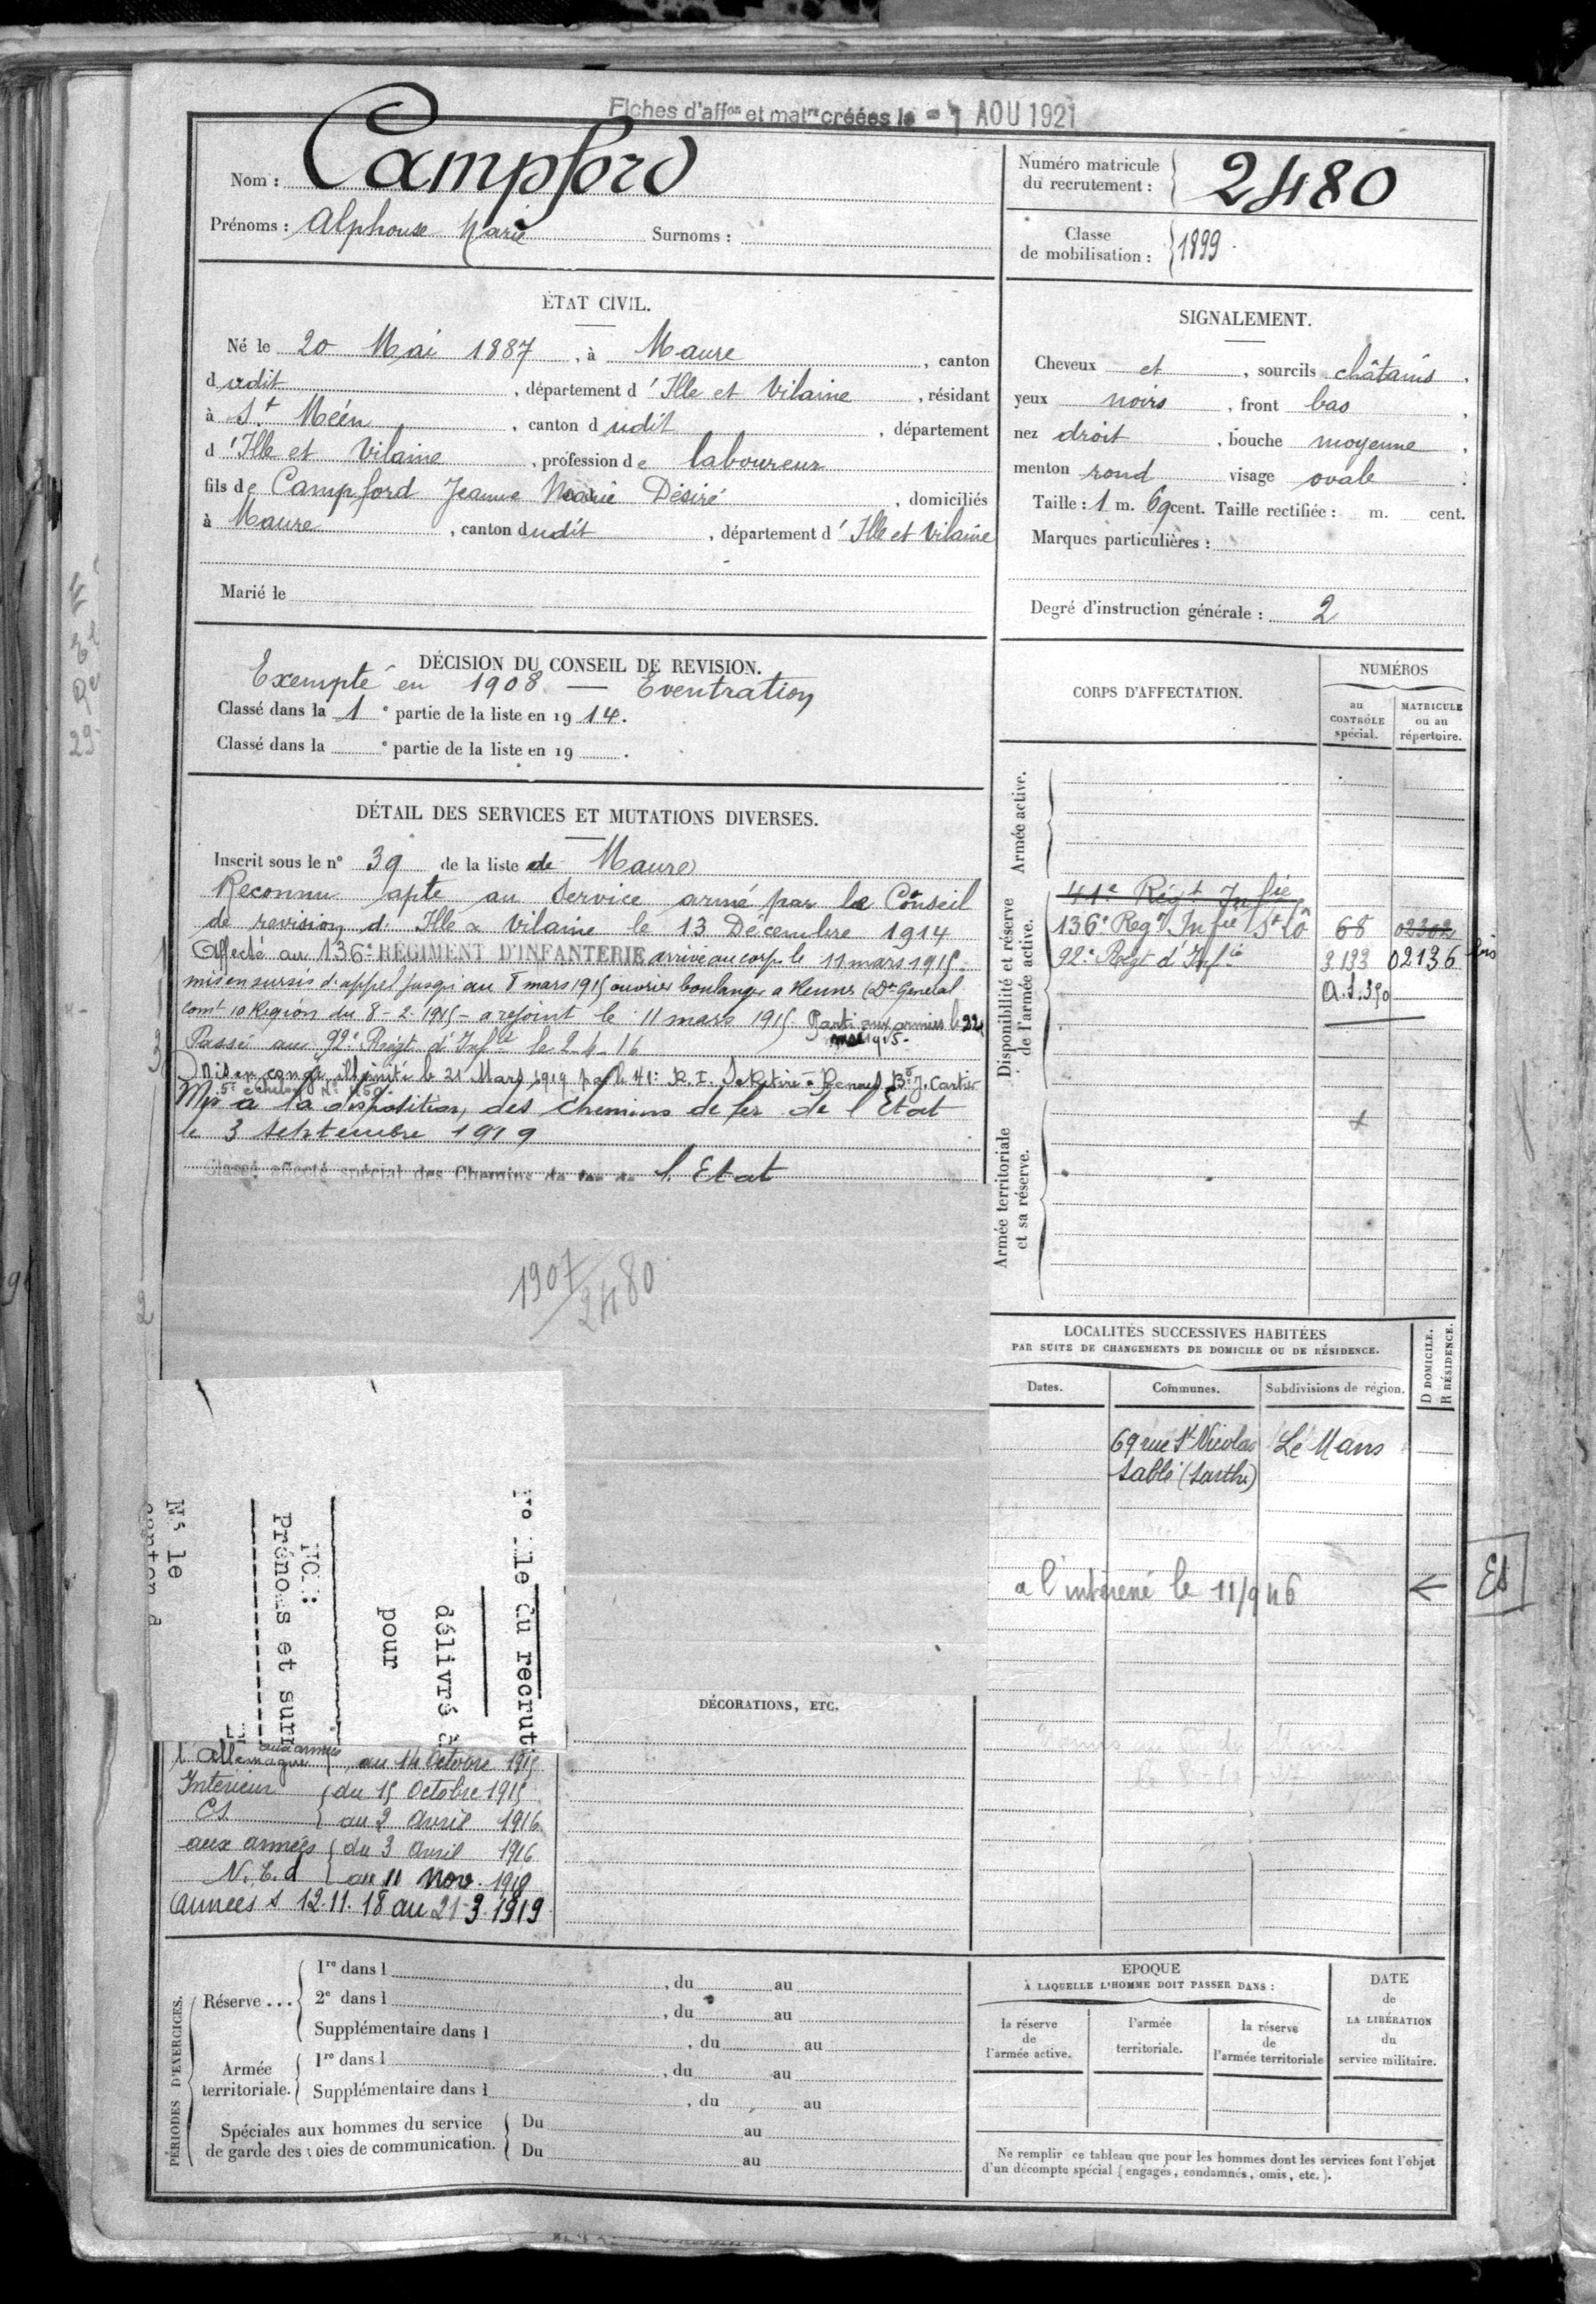 Fiches d'aff on et mat re créées le - 1 AOU 1921
Nom : Campford
Prénoms : Alphonse Marie Surnoms :
Numéro matricule
du recrutement : 2480
Classe
de mobilisation : 1899
ÉTAT CIVIL.
Né le 20 Mai 1887, à Maure, canton
dudit, département d'Ille et Vilaine, résidant
à St Méen, canton dudit, département
d'Ille et Vilaine, profession de laboureur
fils de Campford Jeanne Marie Désiré, domiciliés
à Maure, canton dudit, département d'Ille et Vilaine
Marié le
SIGNALEMENT.
Cheveux et, sourcils châtains,
yeux noirs, front bas,
nez droit, bouche moyenne,
menton rond visage ovale
Taille : 1 m. 69 cent. Taille rectifiée : m. cent.
Marques particulières :
Degré d'instruction générale : 2
DÉCISION DU CONSEIL DE REVISION.
Exempté en 1908 — Eventration
Classé dans la 1e partie de la liste en 1914.
Classé dans la e partie de la liste en 19 .
DÉTAIL DES SERVICES ET MUTATIONS DIVERSES.
Inscrit sous le n° 39 de la liste de Maure
Reconnu apte au Service armé par le Conseil
de revision d'Ille & Vilaine le 13 Décembre 1914
Affecté au 136e RÉGIMENT D'INFANTERIE arrivé au corps le 11 mars 1915.
mis en sursis d'appel jusqu'au 8 mars 1915 ouvrier boulanger a Rennes (Don General
Comt 10 Région du 8-2-1915 - a rejoint le 11 mars 1915 Parti aux armées le 22
mai 1915.
Passé au 92e Régt d'Inft le 2-4-16
Mis en congé illimité le 21 Mars 1919 par le 41e R.I. Se Retire à Rennes Bd J. Cartier
5e échelon N° 459
Mis à la disposition des chemins de fer de l'Etat
le 3 septembre 1919
Classé affecté spécial des Chemins de fer de l'Etat
1907
2480
CORPS D'AFFECTATION.
NUMÉROS
au
CONTRÔLE
spécial.
MATRICULE
ou au
répertoire.
Armée active.
Disponibilité et réserve
de l'armée active.
41e Régt Infie
136e Regt Infie St Lô 68 02302
92e Regt d'Infie 3133 02136 bis
Armée territoriale
et sa réserve.
LOCALITÉS SUCCESSIVES HABITÉES
PAR SUITE DE CHANGEMENTS DE DOMICILE OU DE RÉSIDENCE.
Dates.
Communes.
Subdivisions de région.
D DOMICILE.
R RÉSIDENCE.
69 rue St Nicolas Le Mans
Sablé (Sarthe)
le 11/9 46
ES
N° le
NOM :
Prénoms et surn
pour
délivré à
le du recrut
DÉCORATIONS, ETC.
aux armées
l'Allemagne au 14 Octobre 1915
Intérieur du 15 Octobre 1915
CS au 2 Avril 1916
aux armées du 3 Avril 1916
N.E.d au 11 Nov. 1918
Armées d 12.11.18 au 21-3-1919
PÉRIODES D'EXERCICES.
Réserve...
1re dans l , du au
2e dans l , du au
Supplémentaire dans l , du au
Armée
territoriale.
1re dans l , du au
Supplémentaire dans l , du au
Spéciales aux hommes du service
de garde des voies de communication.
Du au
Du au
ÉPOQUE
À LAQUELLE L'HOMME DOIT PASSER DANS :
la réserve
de
l'armée active.
l'armée
territoriale.
la réserve
de
l'armée territoriale
DATE
de
LA LIBÉRATION
du
service militaire.
Ne remplir ce tableau que pour les hommes dont les services font l'objet
d'un décompte spécial (engagés, condamnés, omis, etc.).